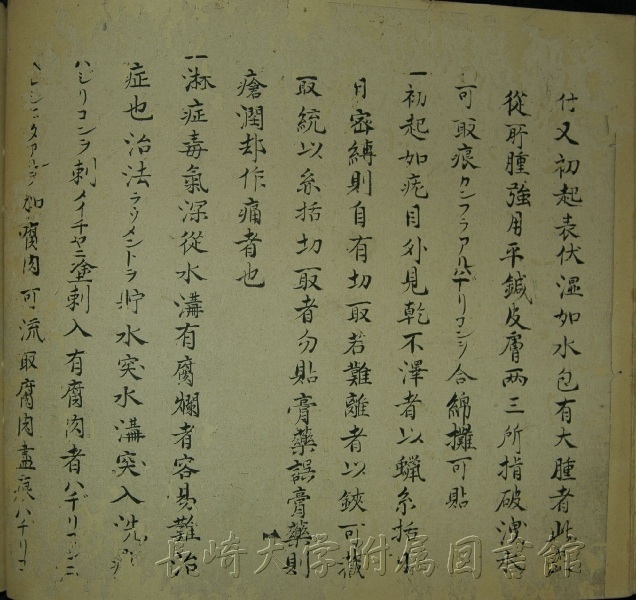 付又初起表伏湿如水包有大腫者此
從所腫強用平鍼皮膚両三所指破洩水
可取痕カンフラアルハテリコンヲ合綿攤可貼
一初起如疣目外見乾不澤者以蝋糸括
日密縛則自有切取若難離者以鋏可截
取統以糸括切取者勿貼膏藥誤膏藥則
瘡潤却作痛者也
一淋症毒氣深從水溝有腐爛者容易難治
症也治法ラソメントヲ貯水突水溝突入洗
ハシリコンヲ刺メイチヤニ塗刺入有腐肉者ハヂリ
如腐肉可流取腐肉盡痕ハヂリコ
長崎大学附属図書館